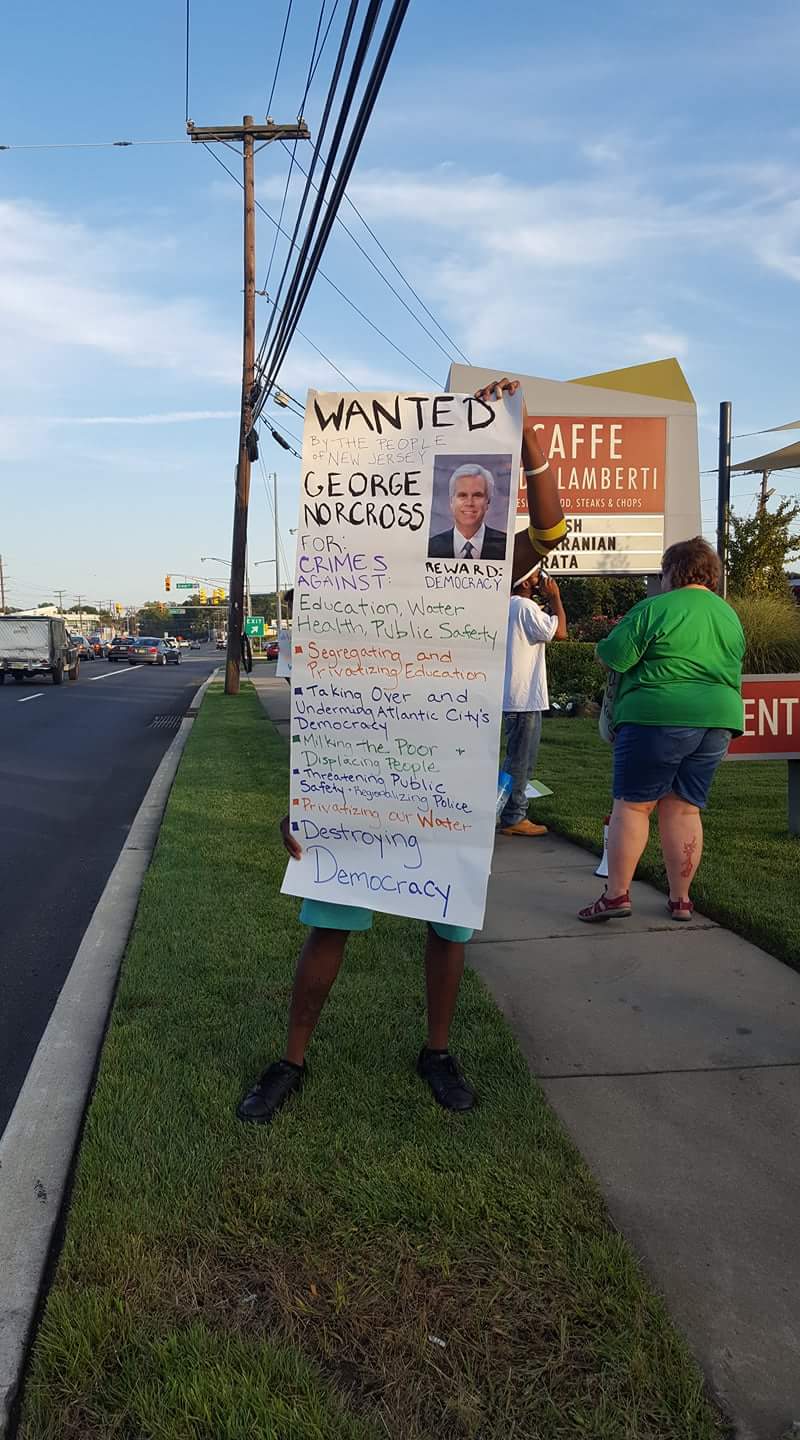 WANTED
BY THE PEOPLE
of NEW JERSEY
GEORGE
NORCROSS
FOR:
CRIMES
AGAINST:
REWARD:
DEMOCRACY
Education, Water
Health, Public Safety
Segregating and
Privatizing Education
Taking Over and
Undermining Atlantic City's
Democracy
Milking the Poor +
Displacing People
Threatening Public
Safety - Regionalizing Police
Privatizing our Water
Destroying
Democracy
CAFFE
LAMBERTI
OOD, STEAKS & CHOPS
SH
RANIAN
RATA
EXIT
ENT